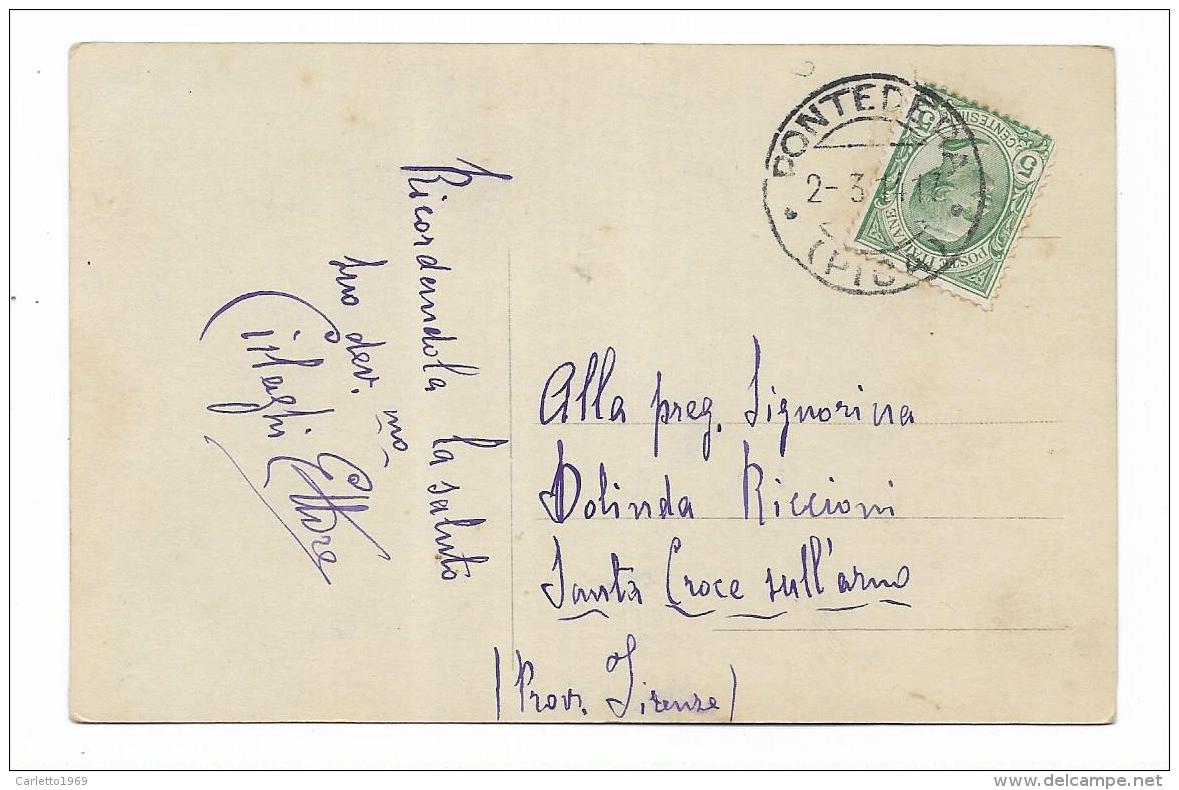 Ricordandola la saluto
suo dev.mo
Ettore
PONTEDERA
2-3 14 17
(PISA)
5 CENTESIMI 5
POSTE ITALIANE
Alla preg. Signorina
Dolinda Riccioni
Santa Croce sull'arno
(Prov. Firenze)
Carletto1969
delcampe.net